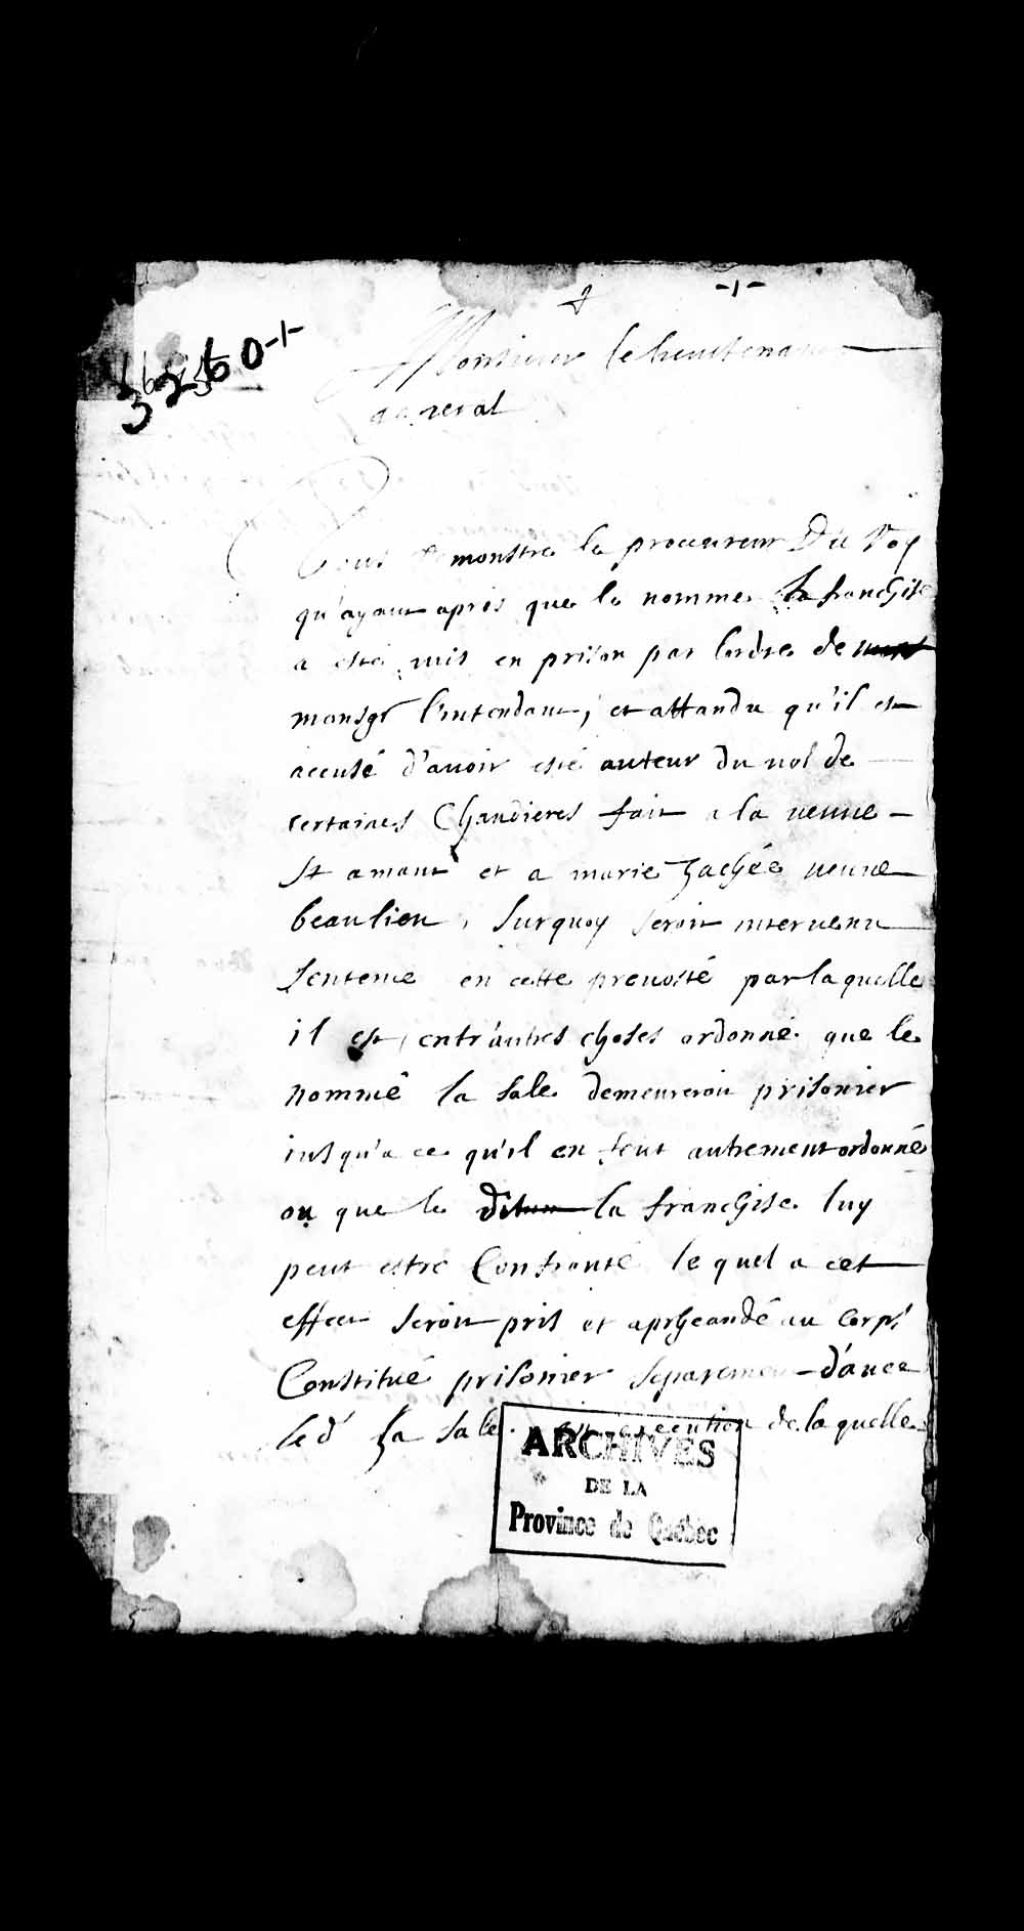 -1-
Monsieur le lieutenant
general
Vous remonstre le procureur Du Roy
qu'ayant apris que le nommé la franchise
a esté mis en prison par l'ordre de
monsgr l'intendant, et attandu qu'il est
accusé d'auoir esté auteur du uol de
certaines Chaudieres fait a la ueuue
St amant et a marie zachée ueuue
beaulieu, surquoy seroit interuenu
sentence en cette preuosté par laquelle
il est entr'autres choses ordonné que le
nommé la sale demeureroit prisonier
iusqu'a ce qu'il en feut autrement ordonné
ou que le la franchise luy
peut estre Confronté lequel a cet
effect seroit pris et aprheandé au corps
Constitué prisonier separement d'auec
led' la sale. en execution de laquelle
ARCHIVES
DE LA
Province de Québec